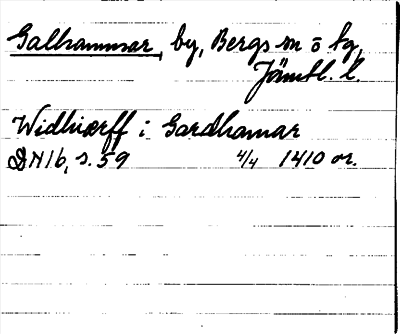 Galhammar, by, Bergs sn o tg,
Jämtl. l.
Widhiærff i Gardhamar
DN 16, s. 59 4/4 1410 or.